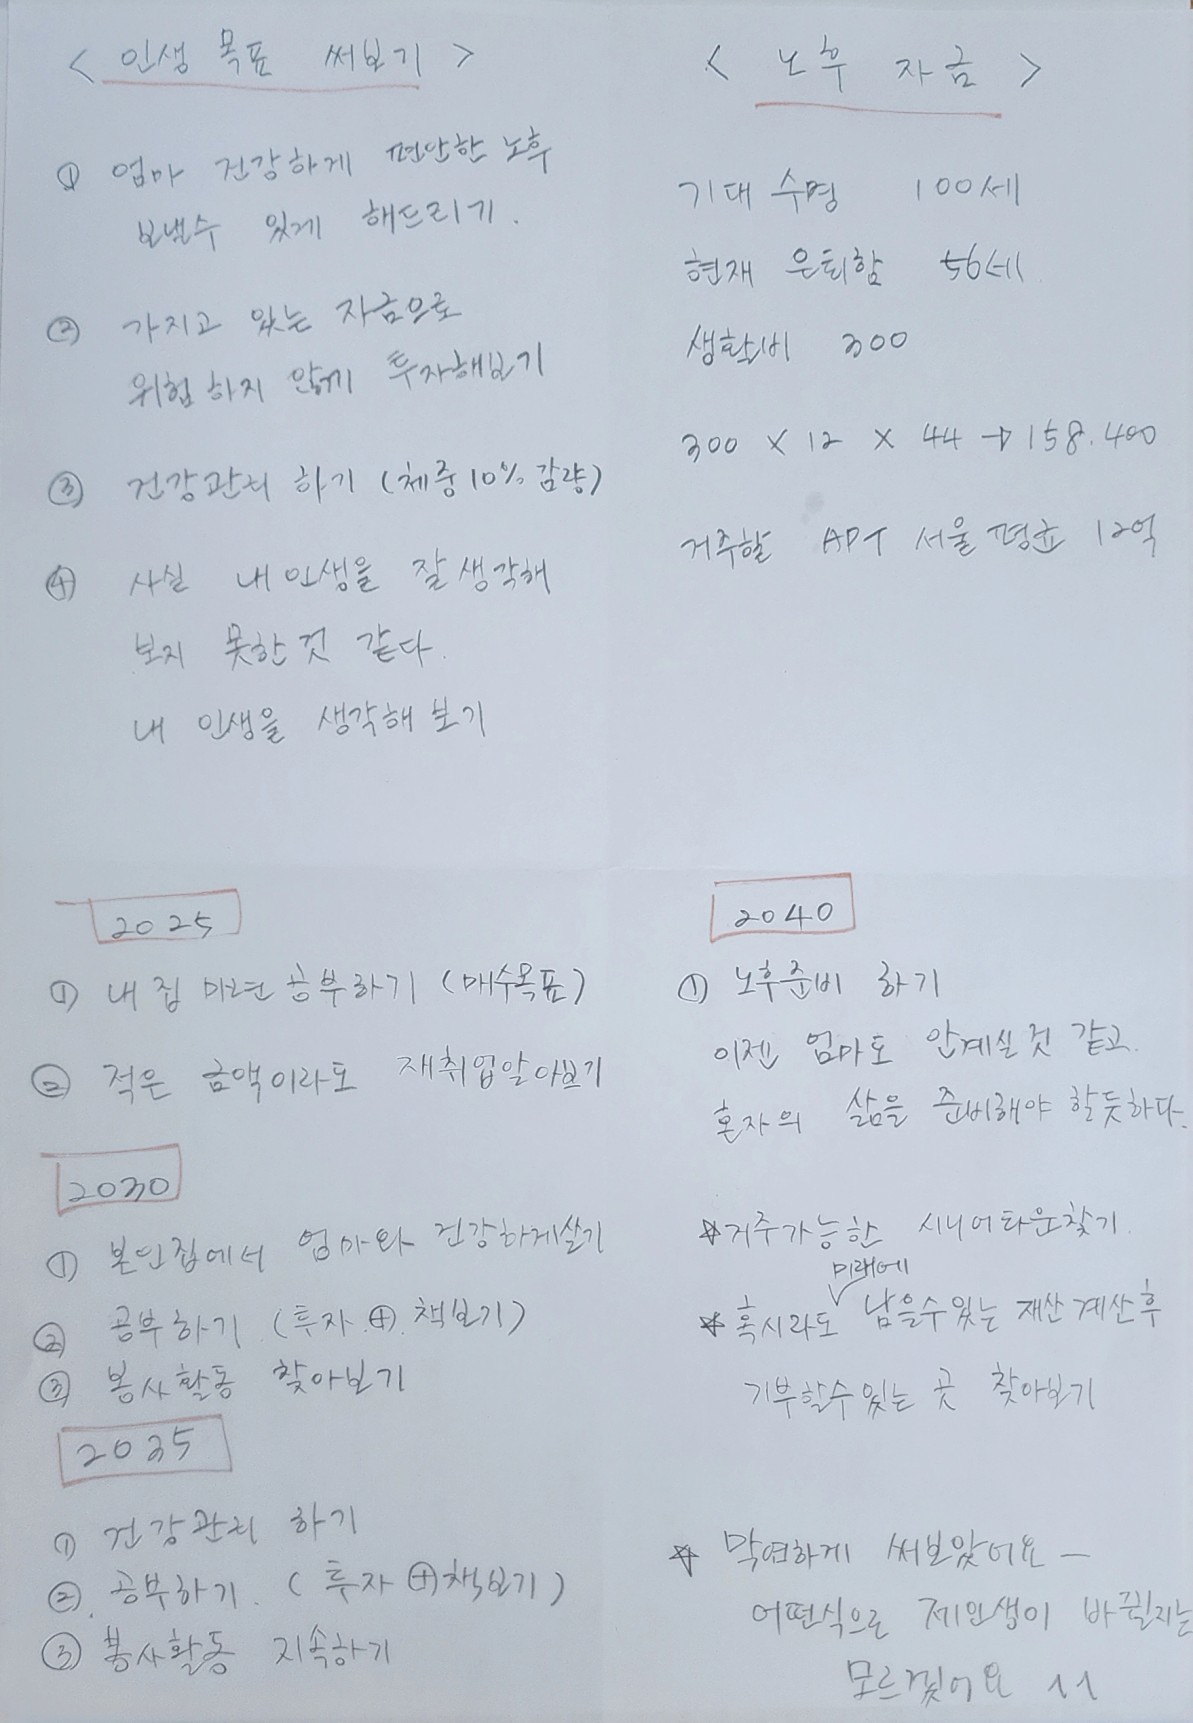 < 인생 목표 써보기 >
① 엄마 건강하게 편안한 노후
보낼수 있게 해드리기.
② 가지고 있는 자금으로
위험하지 않게 투자해보기
③ 건강관리 하기 (체중 10% 감량)
④ 사실 내 인생을 잘 생각해
보지 못한것 같다.
내 인생을 생각해 보기
< 노후 자금 >
기대 수명 100세
현재 은퇴함 56세.
생활비 300
300 × 12 × 44 → 158.400
거주할 APT 서울 평균 12억
2025
① 내집 마련 공부하기 (매수목표)
② 적은 금액이라도 재취업알아보기
2030
① 본인집에서 엄마와 건강하게살기
② 공부하기. (투자 ⊕ 책보기)
③ 봉사활동 찾아보기
2035
① 건강관리 하기
②. 공부하기. (투자 ⊕책보기)
③ 봉사활동 지속하기
2040
① 노후준비 하기
이젠 엄마도 안계실것 같고.
혼자의 삶을 준비해야 할듯하다.
☆거주가능한 시니어타운찾기.
☆ 혹시라도 미래에 남을수있는 재산 계산 후
기부할수있는 곳 찾아보기
☆ 막연하게 써보았어요 —
어떤식으로 제인생이 바뀔지는
모르겠어요 ^^